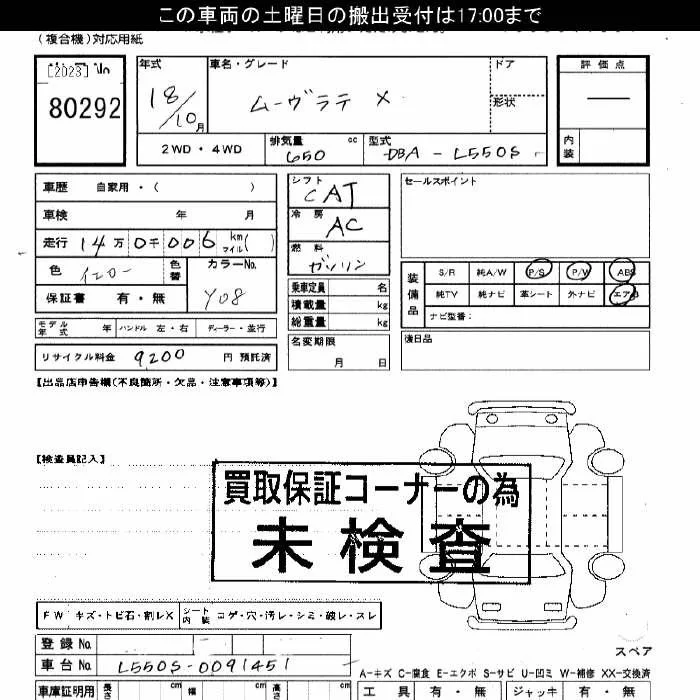 この車両の土曜日の搬出受付は17:00まで
(複合機)対応用紙
[2023] No
80292
年式
18/10月
車名・グレード
ムーヴラテ X
ドア
形状
評価点
内装
2WD・4WD
排気量
650 cc
型式
DBA - L550S
車歴 自家用・( )
車検 年 月
走行 14万 0千 006 km マイル( )
色 イエロー
色替
カラーNo.
Y08
保証書 有・無
モデル年式 年 ハンドル 左・右 ディーラー・並行
リサイクル料金 9200 円 預託済
シフト
CAT
冷房
AC
燃料
ガソリン
乗車定員 名
積載量 kg
総重量 kg
名変期限
月 日
セールスポイント
装備品
S/R 純A/W P/S P/W ABS
純TV 純ナビ 革シート 外ナビ エアB
ナビ型番:
後日品
【出品店申告欄(不良箇所・欠品・注意事項等)】
【検査員記入】
買取保証コーナーの為
未検査
FW キズ・トビ石・割レX
シート内装 コゲ・穴・汚レ・シミ・破レ・スレ
登録 No.
車台 No. L550S-0091451
スペア
A-キズ C-腐食 E-エクボ S-サビ U-凹ミ W-補修 XX-交換済
車庫証明用 長さ cm 幅 cm 高さ cm
工具 有・無 ジャッキ 有・無